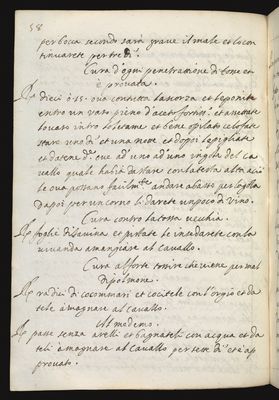 58
per bocca secondo sarà grave il male et lo con
tinuarete per tre dì.
Cura d'ogni penetratione di bone et
è provata.
Dieci ò 15. ova con tutta la scorza et le ponete
entro un vaso pieno d'aceto fortiss. et
lovato intro solerame et bene opilato celo fate
stare un dì et una nott et dopoi le pigliate
et datene due ad uno ad uno in gola del Ca
vallo quale habbi da stare con la testa alta aciò
le ova possano facilmte andare abasso per la golla
dapoi per un corno li darete un poco di vino.
Cura contro la tosse vecchia.
foglie di savina et pistate le incdarete con la
vivanda a mangiare al cavallo.
Cura al forte tossire che viene per mal
di polmone.
radici di cocommari et cocitele con l'orgio et da
tele à magnare al cavallo.
Al medemo.
passe senza arelli et bagnateli con acqua et da
teli à magnare al Cavallo per sem di et è ap
provato.